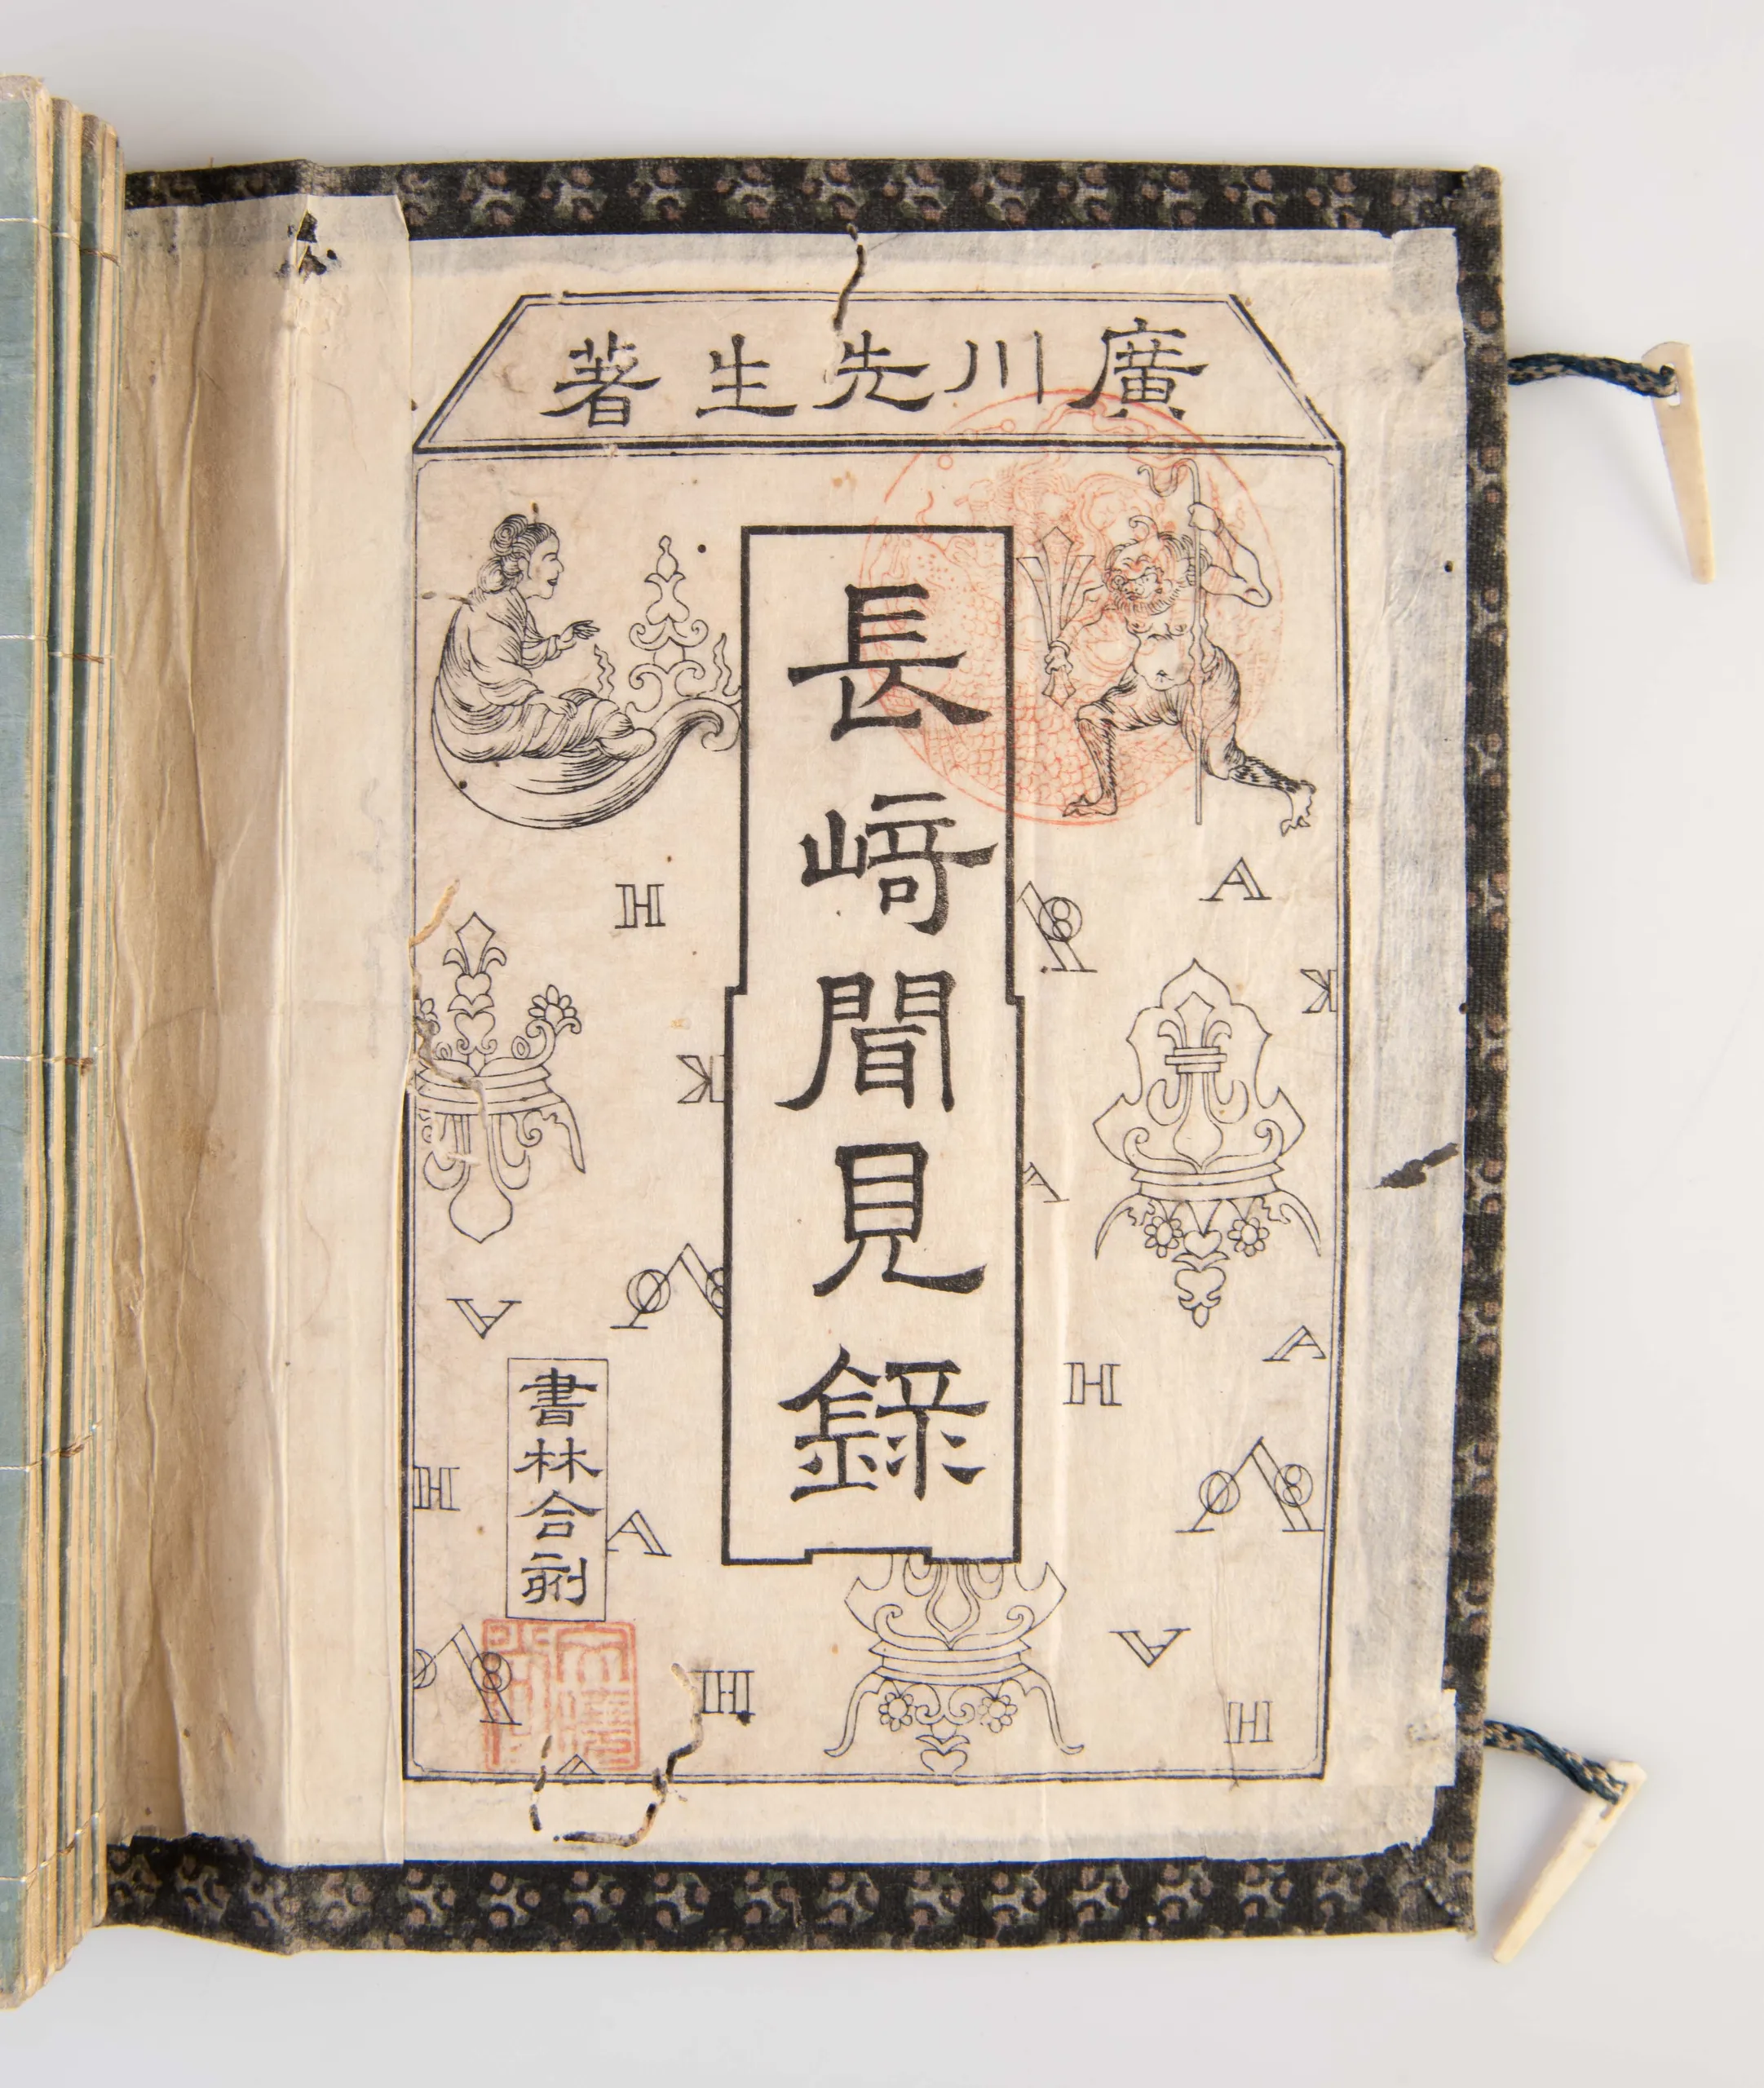 廣川先生著
長﨑聞見錄
書林合刻
H
A
K
K
A
A
A
H
H
A
A
H
H